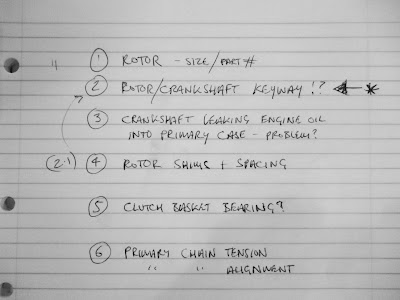 " ① ROTOR - SIZE/PART#
② ROTOR/CRANKSHAFT KEYWAY !? *
③ CRANKSHAFT LEAKING ENGINE OIL
INTO PRIMARY CASE - PROBLEM?
(2.1) ④ ROTOR SHIMS + SPACING
⑤ CLUTCH BASKET BEARING?
⑥ PRIMARY CHAIN TENSION
" " ALIGNMENT